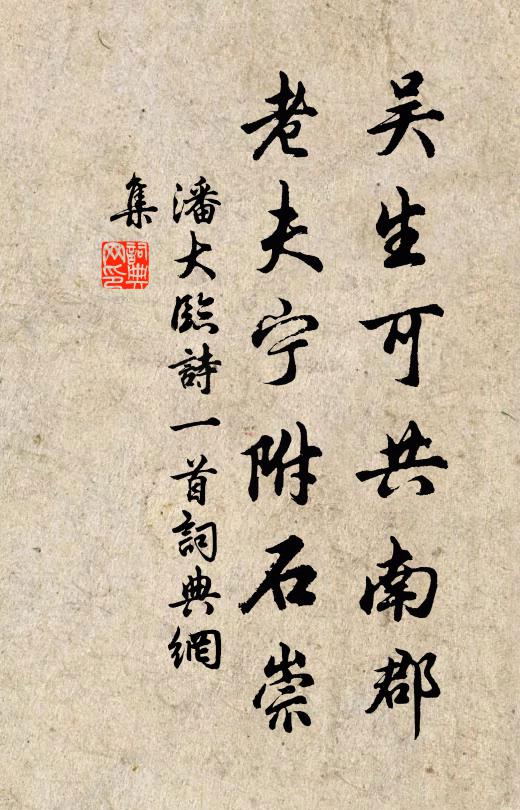 吴生可共南郡
老夫宁附石崇
潘大臨詩一首詞典網
集
詞典
网印